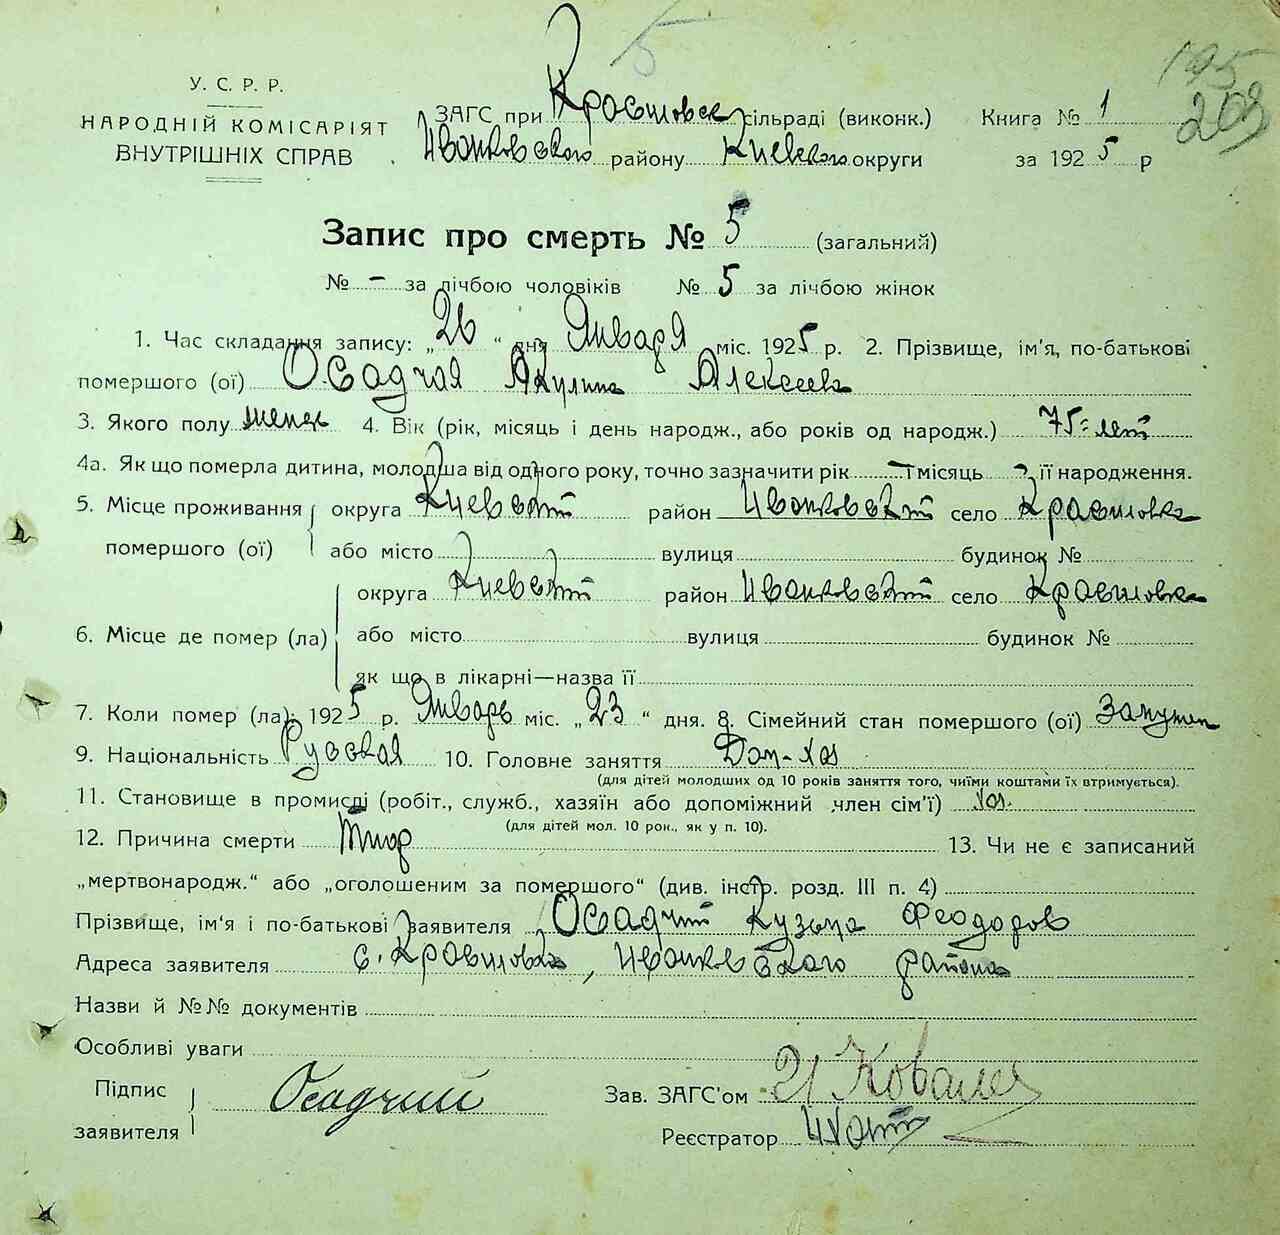 5
195
203
У. С. Р. Р.
НАРОДНІЙ КОМІСАРІЯТ
ВНУТРІШНІХ СПРАВ
ЗАГС при Кравшовск сільраді (виконк.) Книга № 1
Иванковского району Киевского округи за 1925 р
Запис про смерть № 5 (загальний)
№ - за лічбою чоловіків № 5 за лічбою жінок
1. Час складання запису: „26“ дня Января міс. 1925 р. 2. Прізвище, ім'я, по-батькові
помершого (ої) Осадчая Акулина Алексеева
3. Якого полу женск 4. Вік (рік, місяць і день народж., або років од народж.) 75 = лет
4а. Як що померла дитина, молодша від одного року, точно зазначити рік - місяць - її народження.
5. Місце проживання помершого (ої) округа Киевский район Иванковский село Кравшовка
або місто вулиця будинок №
6. Місце де помер (ла) округа Киевский район Иванковский село Кравшовка
або місто вулиця будинок №
як що в лікарні—назва її
7. Коли помер (ла): 1925 р. Январь міс. „23“ дня. 8. Сімейний стан помершого (ої) Замужем
9. Національність Русская 10. Головне заняття Дом-хоз
(для дітей молодших од 10 років заняття того, чиїми коштами їх втримується).
11. Становище в промислі (робіт., служб., хазяїн або допоміжний член сім'ї) хоз.
(для дітей мол. 10 рок., як у п. 10).
12. Причина смерти 13. Чи не є записаний
„мертвонародж.“ або „оголошеним за помершого“ (див. інстр. розд. III п. 4)
Прізвище, ім'я і по-батькові заявителя Осадчий Кузьма Феодоров
Адреса заявителя с. Кравшовка, Иванковского района
Назви й №№ документів
Особливі уваги
Підпис заявителя Осадчий Зав. ЗАГС'ом
Реєстратор